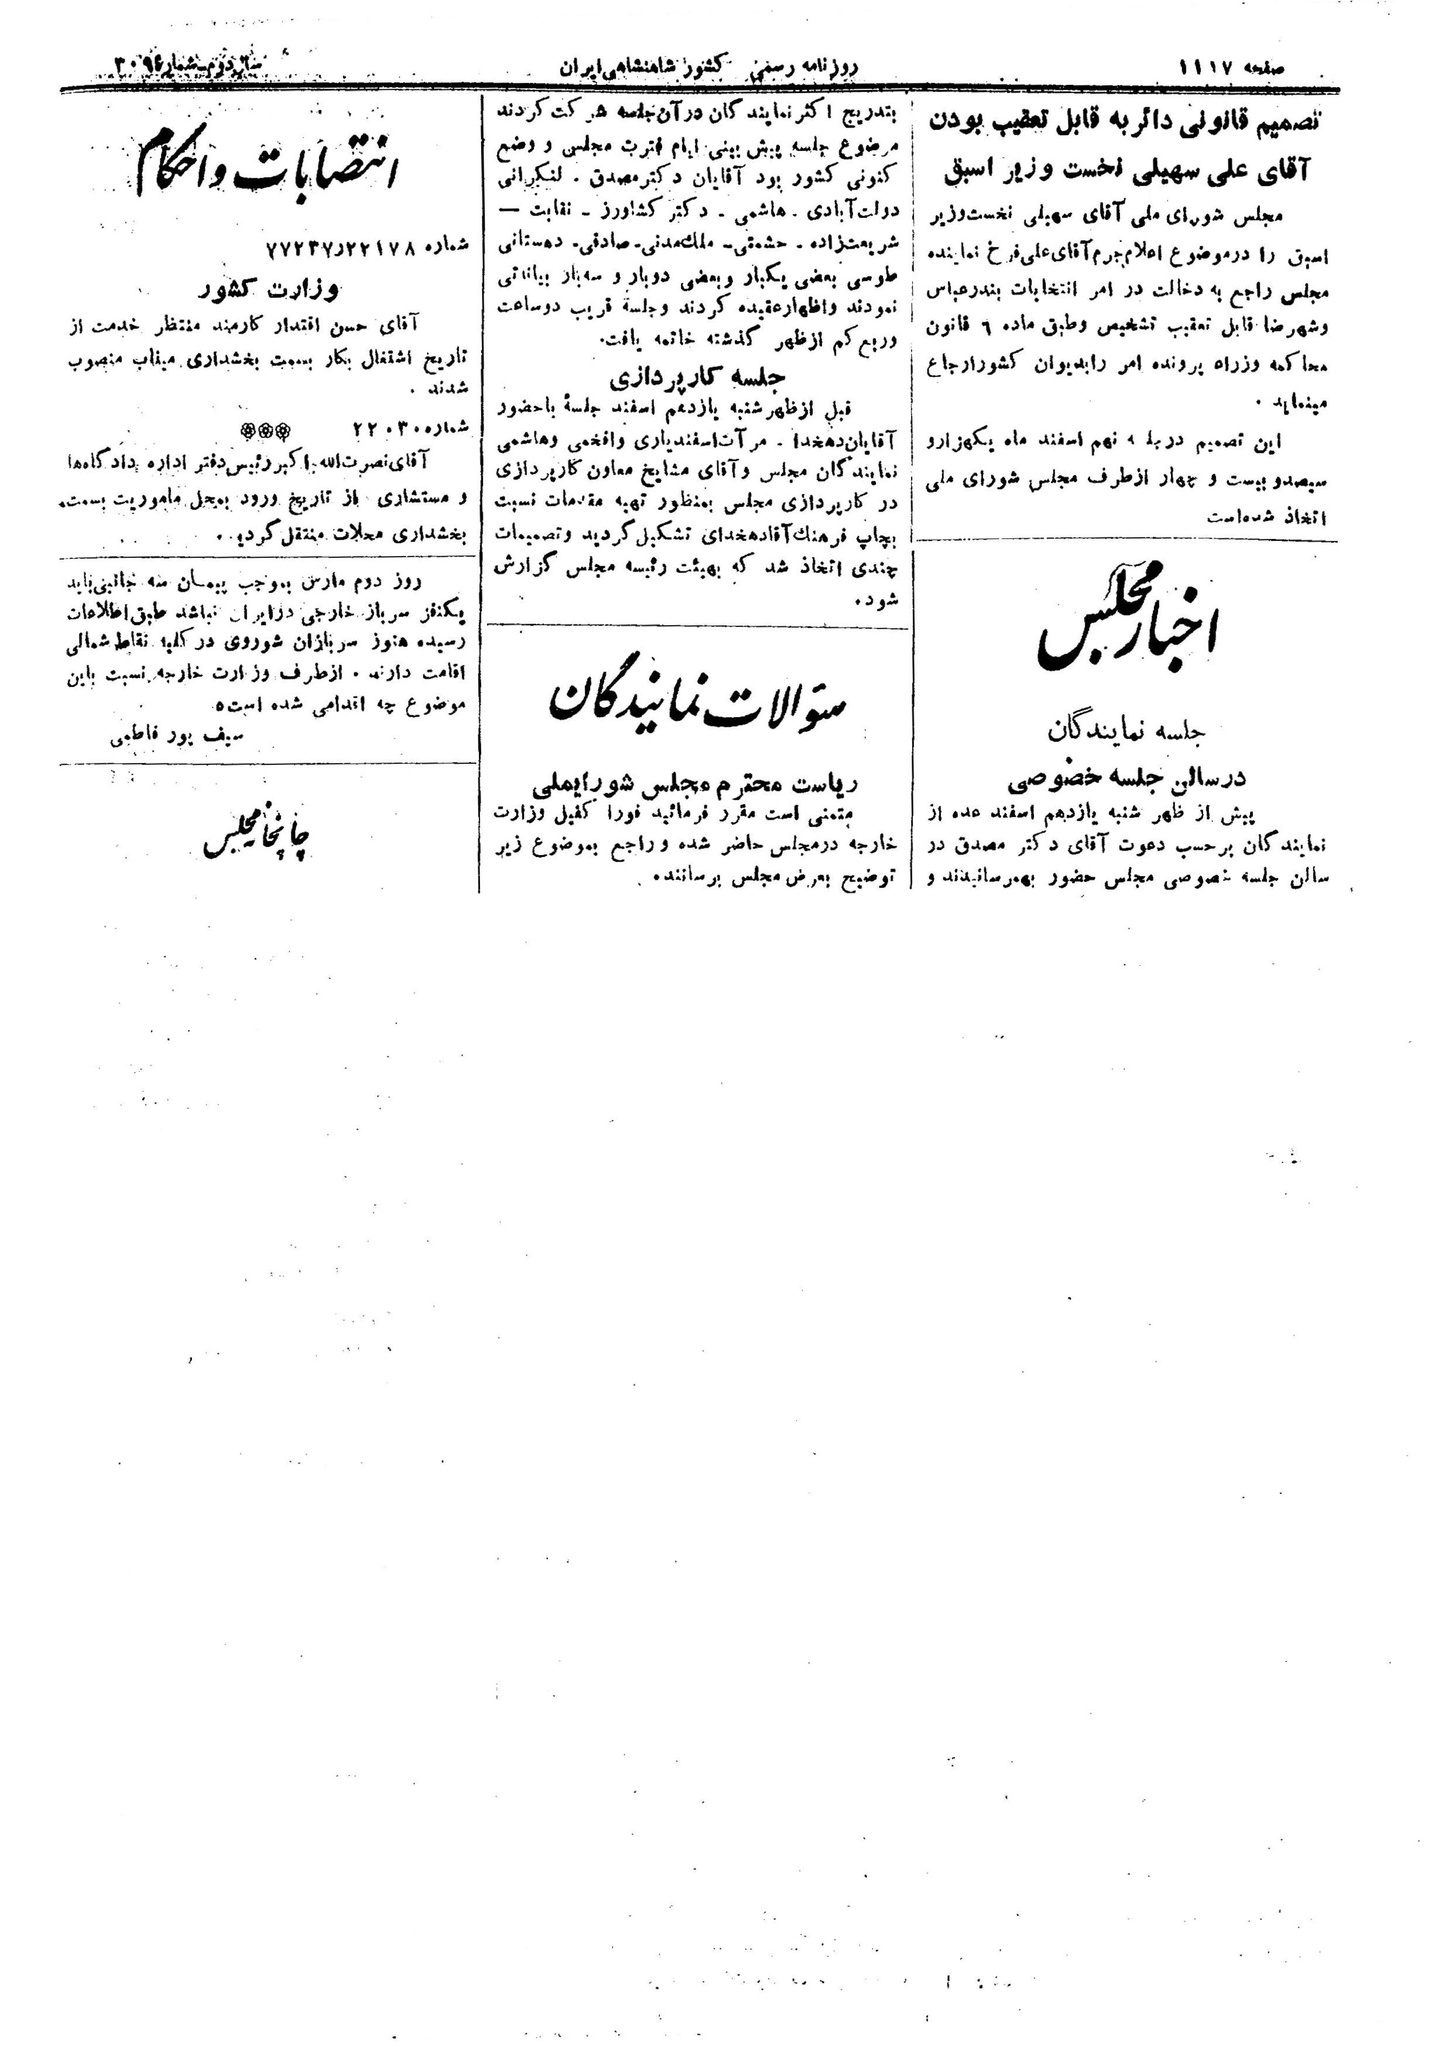 صفحه ۱۱۱۷
روزنامه رسمی کشور شاهنشاهی ایران
سال دوم - شماره ۳۰۹٤
تصمیم قانونی دائر به قابل تعقیب بودن
آقای علی سهیلی نخست وزیر اسبق
مجلس شورای ملی آقای سهیلی نخست‌وزیر
اسبق را درموضوع اعلام‌جرم‌آقای‌علی‌فرخ نماینده
مجلس راجع به دخالت در امر انتخابات بندرعباس
وشهرضا قابل تعقیب تشخیص وطبق ماده ٦ قانون
محاکمه وزراء پرونده امر رابدیوان کشورارجاع
مینماید .
این تصمیم در نهم اسفند ماه یکهزارو
سیصدوبیست و چهار ازطرف مجلس شورای ملی
اتخاذ شده‌است
اخبار مجلس
جلسه نمایندگان
درسالن جلسه خصوصی
پیش از ظهر شنبه یازدهم اسفند عده از
نمایندگان برحسب دعوت آقای دکتر مصدق در
سالن جلسه خصوصی مجلس حضور بهمرسانیدند و
بتدریج اکثرنمایندگان درآن‌جلسه شرکت کردند
موضوع جلسه پیش بینی ایام فترت مجلس و وضع
کنونی کشور بود آقایان دکترمصدق . لنکرانی
دولت‌آبادی . هاشمی - دکتر کشاورز - نقابت —
شریعت‌زاده - حشمتی - ملك‌مدنی - صادقی - دهستانی
طوسی بعضی یکبار وبعضی دوبار و سه‌بار بیاناتی
نمودند واظهارعقیده کردند وجلسهٔ قریب دوساعت
وربع‌کم ازظهر گذشته خاتمه یافت.
جلسه کارپردازی
قبل ازظهر شنبه یازدهم اسفند جلسهٔ باحضور
آقایان‌دهخدا . مرآت‌اسفندیاری وافخمی وهاشمی
نمایندگان مجلس وآقای مشایخ معاون کارپردازی
در کارپردازی مجلس بمنظور تهیه مقدمات نسبت
بچاپ فرهنك‌آقادهخدای تشکیل گردید وتصمیمات
چندی اتخاذ شد که بهیئت رئیسه مجلس گزارش
شود.
سؤالات نمایندگان
ریاست محترم مجلس شورایملی
متمنی است مقرر فرمائید فورا کفیل وزارت
خارجه درمجلس حاضر شده وراجع بموضوع زیر
توضیح بعرض مجلس برسانند.
انتصابات و احکام
شماره ۷۷۲۳۷ر۲۲۱۷۸
وزارت کشور
آقای حسن اقتدار کارمند منتظر خدمت از
تاریخ اشتغال بکار بسمت بخشداری میناب منصوب
شدند .
شماره ۲۲۰۳۰
آقای‌نصرت‌الله رئیس‌دفتر اداره دادگاه‌ها
و مستشاری از تاریخ ورود بمحل ماموریت بسمت
بخشداری محلات منتقل گردید.
روز دوم مارس بموجب پیمان سه جانبی‌باید
یکنفر سرباز خارجی درایران نباشد طبق اطلاعات
رسیده هنوز سربازان شوروی در کلیه نقاط شمالی
اقامت دارند . ازطرف وزارت خارجه نسبت باین
موضوع چه اقدامی شده است.
سیف پور فاطمی
چاپخانه مجلس